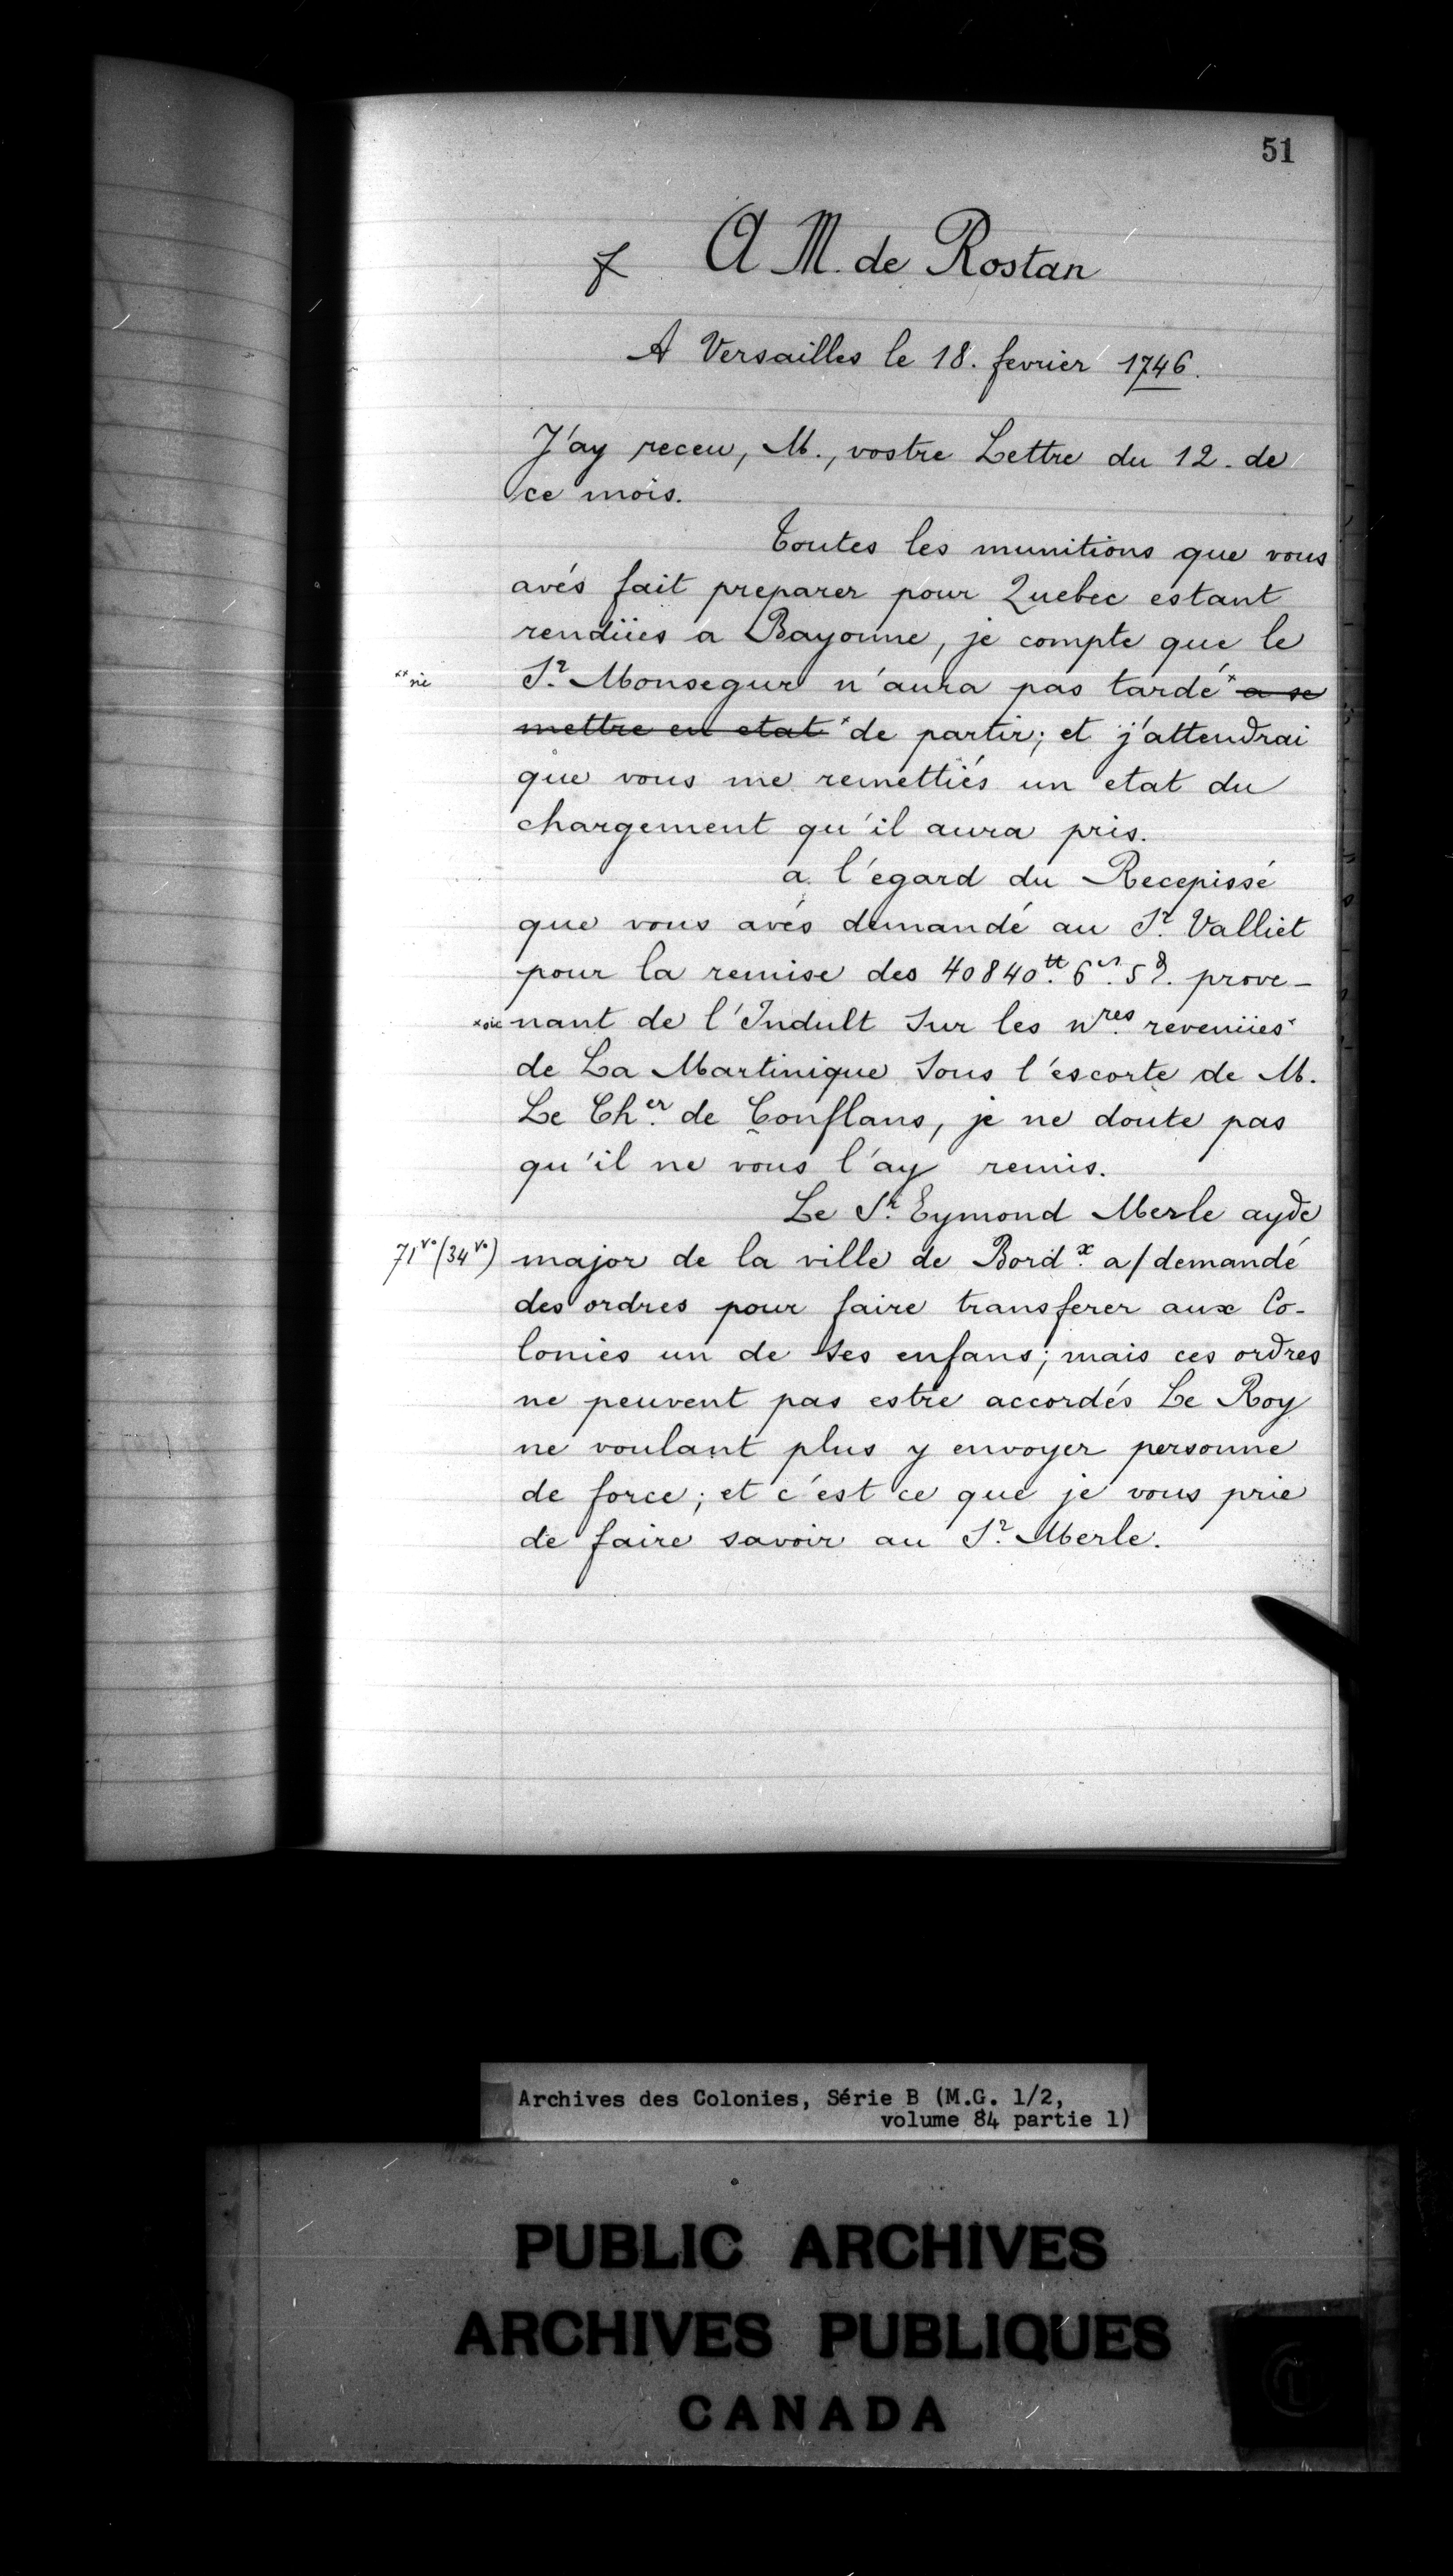 51
A M. de Rostan
A Versailles le 18. fevrier 1746.
J'ay receu, M., vostre Lettre du 12. de
ce mois.
Toutes les munitions que vous
avés fait preparer pour Quebec estant
rendües a Bayonne, je compte que le
Sr. Monsegur n'aura pas tardé x a se
mettre en etat x de partir; et j'attendrai
que vous me remettiés un etat du
chargement qu'il aura pris.
a l'égard du Recepissé
que vous avés demandé au Sr. Valliet
pour la remise des 40840tt. 6s. 5d. prove-
xsic nant de l'Indult sur les nres. revenües x
de La Martinique sous l'escorte de M.
Le Cher. de Conflans, je ne doute pas
qu'il ne vous l'ay remis.
Le Sr. Eymond Merle ayde
71vo (34vo) major de la ville de Bordx. a/demandé
des ordres pour faire transferer aux Co-
lonies un de ses enfans; mais ces ordres
ne peuvent pas estre accordés Le Roy
ne voulant plus y envoyer personne
de force; et c'est ce que je vous prie
de faire savoir au Sr. Merle.
Archives des Colonies, Série B (M.G. 1/2,
volume 84 partie 1)
PUBLIC ARCHIVES
ARCHIVES PUBLIQUES
CANADA